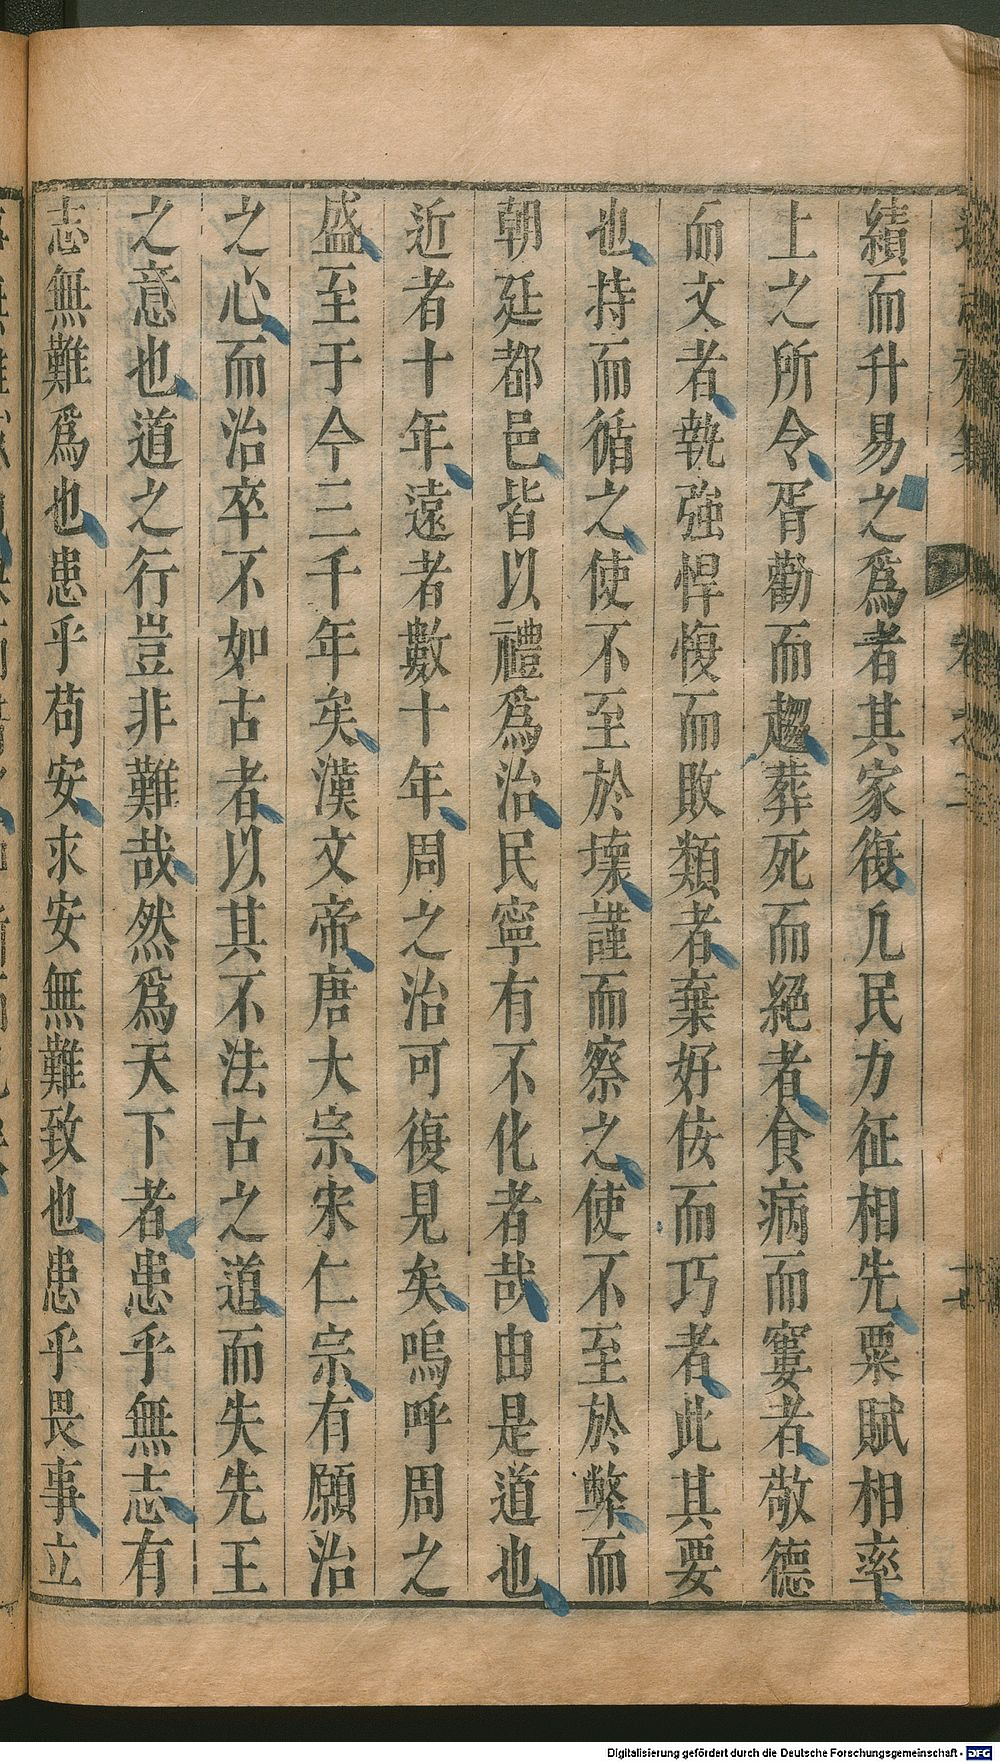 績而升易之爲者其家復凢民力征相先粟賦相率
上之所令胥勸而趨葬死而絕者食病而窶者敬德
而文者執強悍愎而敗類者棄好佞而巧者此其要
也持而循之使不至於壞謹而察之使不至於弊而
朝廷都邑皆以禮爲治民寧有不化者哉由是道也
近者十年遠者數十年周之治可復見矣嗚呼周之
盛至于今三千年矣漢文帝唐大宗宋仁宗有願治
之心而治卒不如古者以其不法古之道而失先王
之意也道之行豈非難哉然爲天下者患乎無志有
志無難爲也患乎苟安求安無難致也患乎畏事立
Digitalisierung gefördert durch die Deutsche Forschungsgemeinschaft - DFG